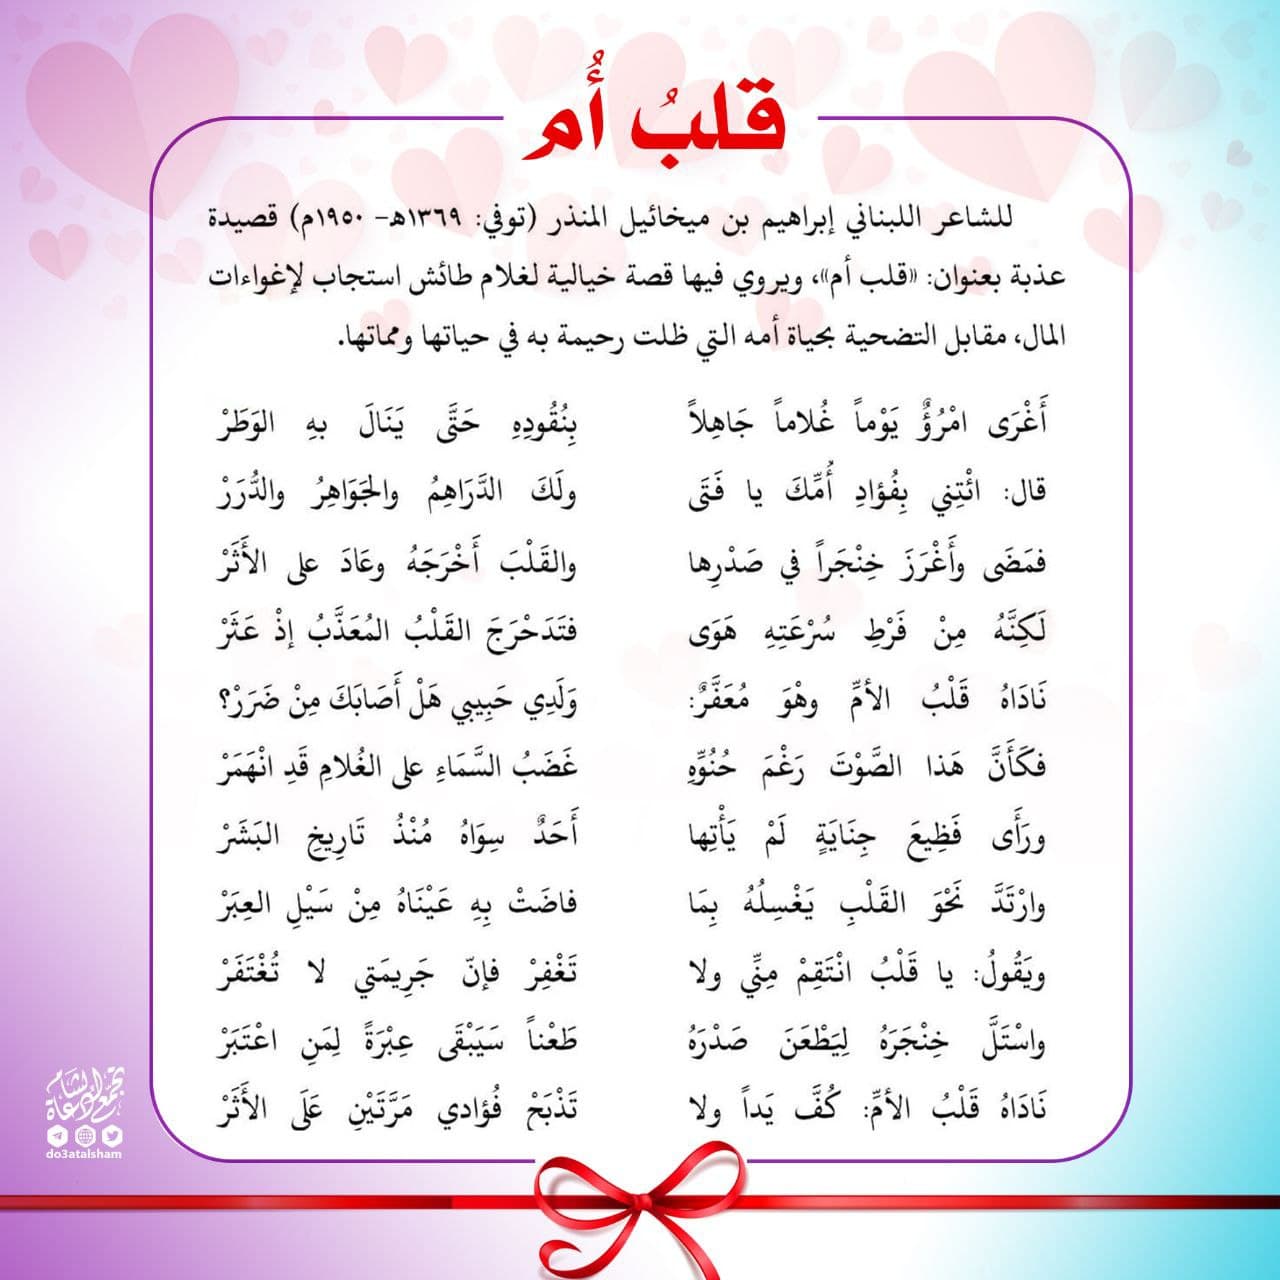 قلبُ أُم
للشاعر اللبناني إبراهيم بن ميخائيل المنذر (توفي: ١٣٦٩هـ- ١٩٥٠م) قصيدة
عذبة بعنوان: «قلب أم»، ويروي فيها قصة خيالية لغلام طائش استجاب لإغواءات
المال، مقابل التضحية بحياة أمه التي ظلت رحيمة به في حياتها ومماتها.
أَغْرَى امْرُؤٌ يَوْماً غُلاماً جَاهِلاً بِنُقُودِهِ حَتَّى يَنَالَ بهِ الوَطَرْ
قال: ائْتِني بِفُؤادِ أُمِّكَ يا فَتَى ولَكَ الدَّرَاهِمُ والجَوَاهِرُ والدُّرَرْ
فمَضَى وأَغْرَزَ خِنْجَراً في صَدْرِها والقَلْبَ أَخْرَجَهُ وعَادَ على الأَثَرْ
لَكِنَّهُ مِنْ فَرْطِ سُرْعَتِهِ هَوَى فتَدَحْرَجَ القَلْبُ المُعَذَّبُ إذْ عَثَرْ
نَادَاهُ قَلْبُ الأمِّ وهْوَ مُعَفَّرٌ: وَلَدِي حَبِيبي هَلْ أَصَابَكَ مِنْ ضَرَرْ؟
فكَأَنَّ هَذا الصَّوْتَ رَغْمَ حُنُوِّهِ غَضَبُ السَّمَاءِ على الغُلامِ قَدِ انْهَمَرْ
ورَأَى فَظِيعَ جِنَايَةٍ لَمْ يَأْتِها أَحَدٌ سِوَاهُ مُنْذُ تَارِيخِ البَشَرْ
وارْتَدَّ نَحْوَ القَلْبِ يَغْسِلُهُ بِمَا فاضَتْ بِهِ عَيْنَاهُ مِنْ سَيْلِ العِبَرْ
ويَقُولُ: يا قَلْبُ انْتَقِمْ مِنِّي ولا تَغْفِرْ فإنّ جَرِيمَتي لا تُغْتَفَرْ
واسْتَلَّ خِنْجَرَهُ لِيَطْعَنَ صَدْرَهُ طَعْناً سَيَبْقَى عِبْرَةً لِمَنِ اعْتَبَرْ
نَادَاهُ قَلْبُ الأمِّ: كُفَّ يَداً ولا تَذْبَحْ فُؤادي مَرَّتَيْنِ عَلَى الأَثَرْ
تجمع دعاة الشام
do3atalsham